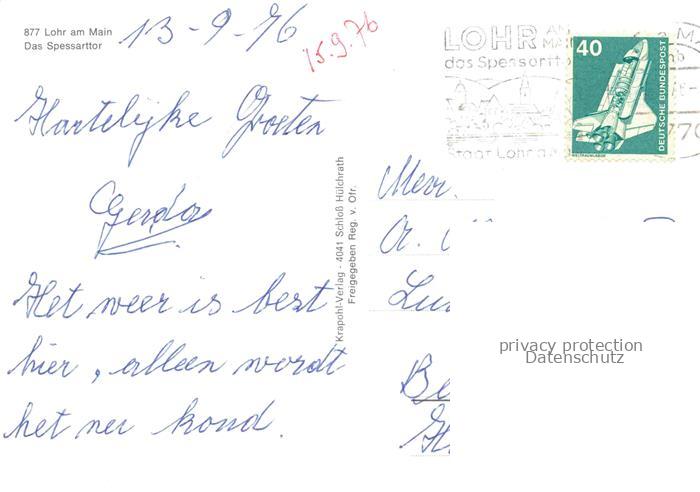 877 Lohr am Main
Das Spessarttor
13-9-76
15.9.76
LOHR AM MAIN
das Spessartto
Stadt Lohr a.
770
40
DEUTSCHE BUNDESPOST
WELTRAUMLABOR
Hartelijke Groeten
Gerda
Het weer is best
hier, alleen wordt
het nu koud.
Krapohl-Verlag - 4041 Schloß Hülchrath
Freigegeben Reg. v. Ofr.
Mevr.
A.
privacy protection
Datenschutz